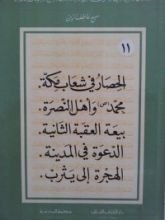 ١١
الحصار في شعاب مكة.
محمد (ص) وأهل النصرة.
بيعة العقبة الثانية.
الدعوة في المدينة.
الهجرة إلى يثرب.